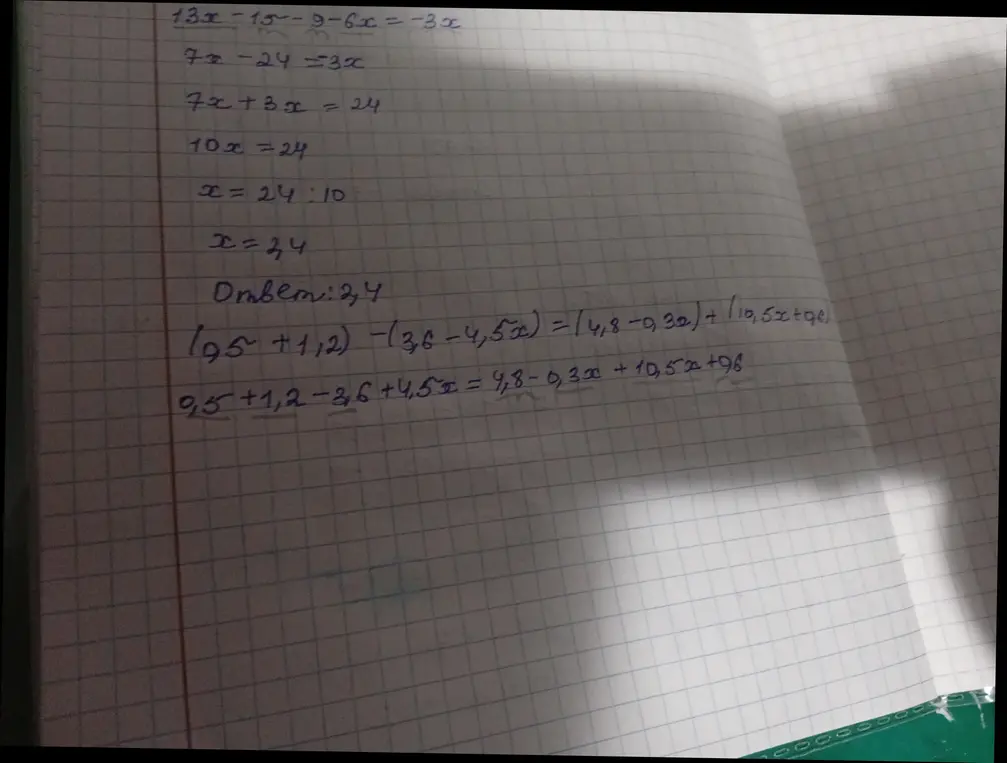 13x - 15 - 9 - 6x = -3x
7x - 24 = -3x
7x + 3x = 24
10x = 24
x = 24 : 10
x = 2,4
Ответ: 2,4
(0,5 + 1,2) - (3,6 - 4,5x) = (4,8 - 0,3x) + (10,5x + 0,6)
0,5 + 1,2 - 3,6 + 4,5x = 4,8 - 0,3x + 10,5x + 0,6